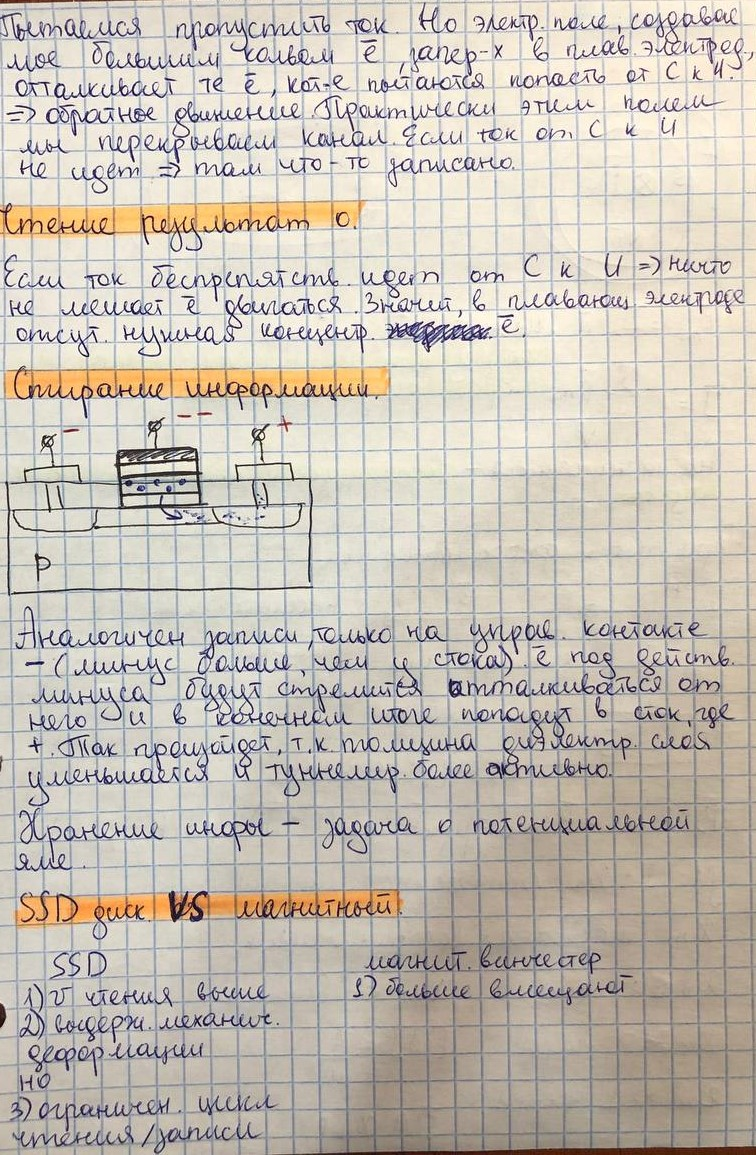 Пытаемся пропустить ток. Но электр. поле, создавае
мое большим колвом ē, запер-х в плав. электрод,
отталкивает те ē, кот-е пытаются попасть от С к И.
=> обратное движение. Практически этим полем
мы перекрываем канал. Если ток от С к И
не идет => там что-то записано.
Чтение результат 0.
Если ток беспрепятств. идет от С к И => ничто
не мешает ē двигаться. Значит, в плавающ. электроде
отсут. нужная концентр. ē.
Стирание информации.
- -- +
р
Аналогичен записи, только на управ. контакте
– (минус больше, чем у стока). ē под действ.
минуса будут стремится отталкиваться от
него и в конечном итоге попадут в сток, где
+. Так произойдет, т.к. толщина диэлектр. слоя
уменьшается и туннелир. более активно.
Хранение инфы – задача о потенциальной
яме.
SSD диск VS магнитный.
SSD магнит. винчестер
1) v чтения выше 1) больше вмещают
2) выдерж. механич.
деформации
но
3) ограничен. цикл
чтения/записи